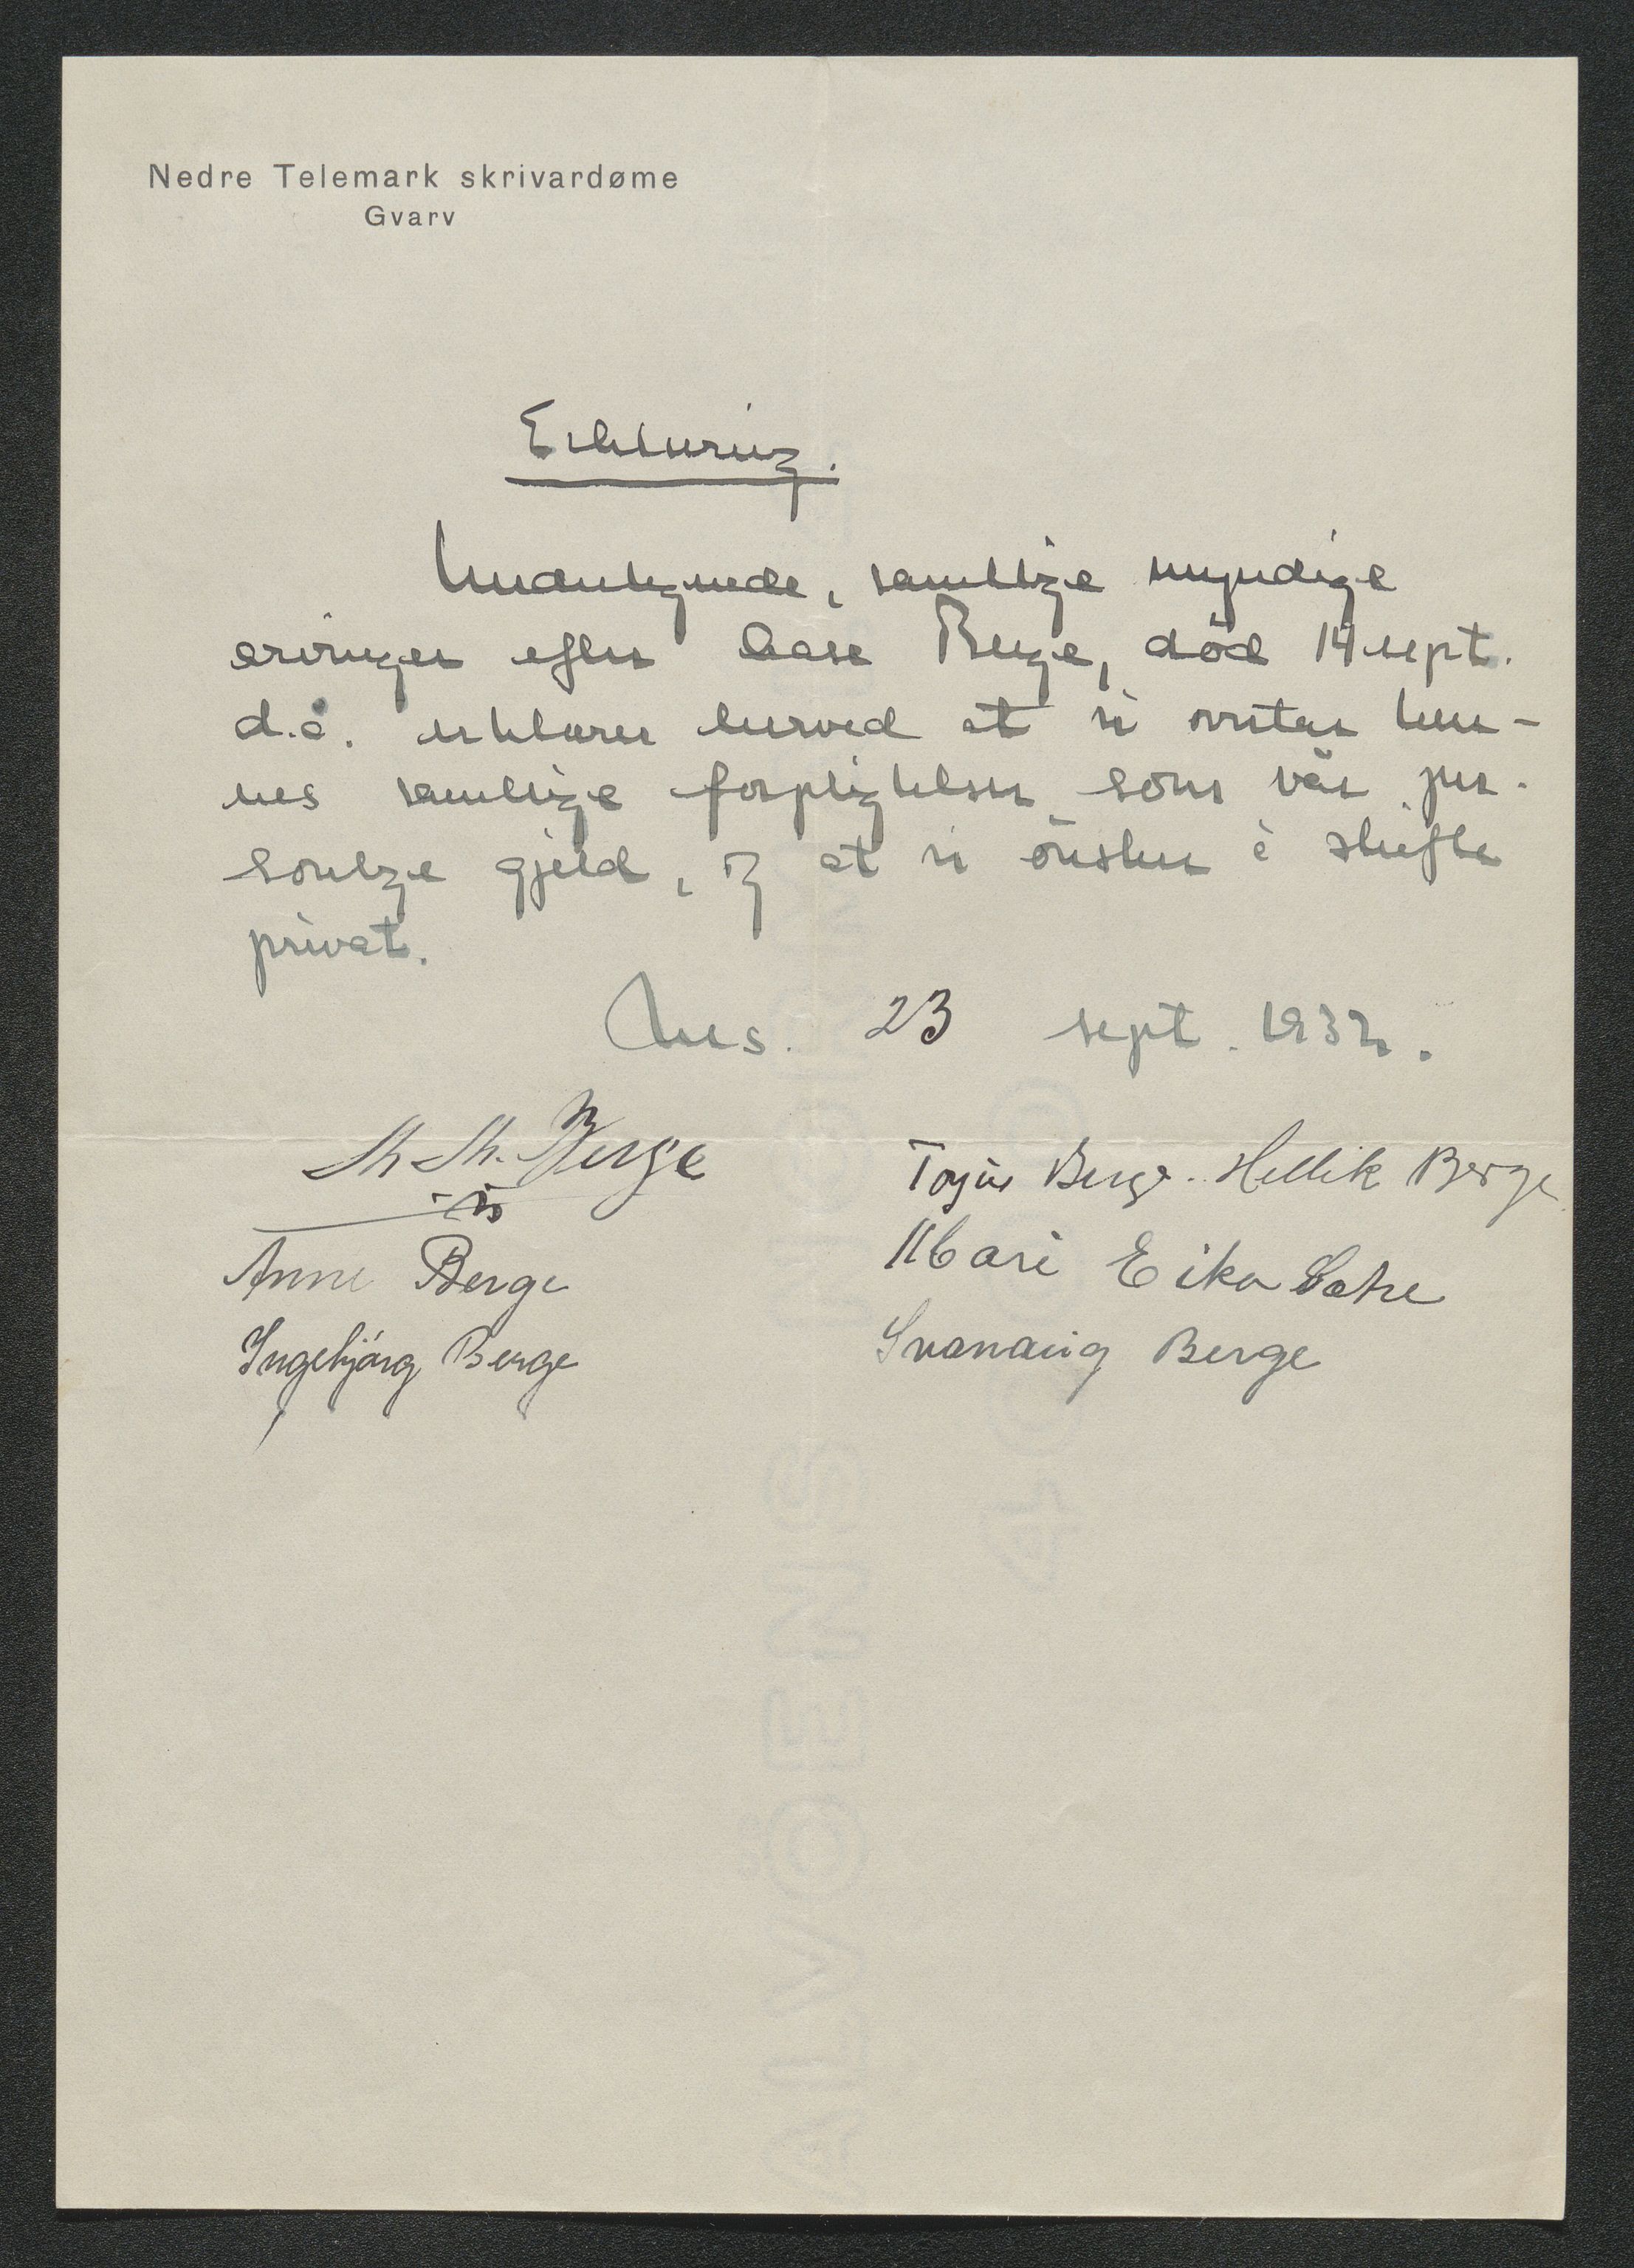 Nedre Telemark skrivardøme
Gvarv
Erklæring.
Undertegnede, samtlige myndige
arvinger efter Aase Berge, död 14 sept.
d.å. erklærer herved at vi overtar hen-
nes samtlige forpligtelser som vår per-
sonlige gjeld, og at vi önsker å skifte
privat.
23 sept. 1932.
Berge
Anne Berge
Ingebjörg Berge
Berge. Hellik Berge
Mari Eika Satre
Svanaug Berge
ALVÖENS